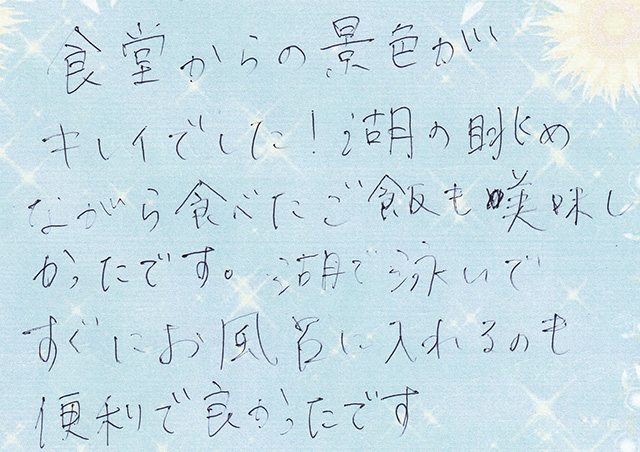 食堂からの景色が
キレイでした!湖の眺め
ながら食べたご飯も美味し
かったです。湖で泳いで
すぐにお風呂に入れるのも
便利で良かったです